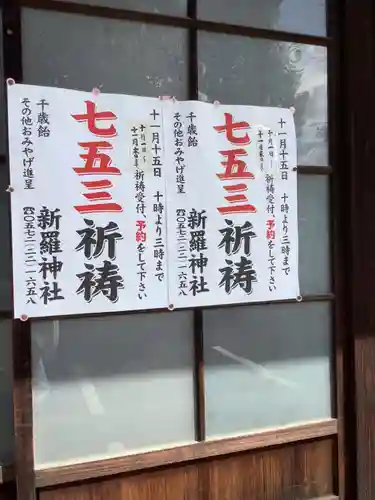 十一月十五日 十時より三時まで
十月一日〜
十一月末日
祈祷受付、予約をして下さい
七五三祈祷
千歳飴
その他おみやげ進呈
新羅神社
☎〇五七二―二二―一六五八
十一月十五日 十時より三時まで
十月一日〜
十一月末日
祈祷受付、予約をして下さい
七五三祈祷
千歳飴
その他おみやげ進呈
新羅神社
☎〇五七二―二二―一六五八